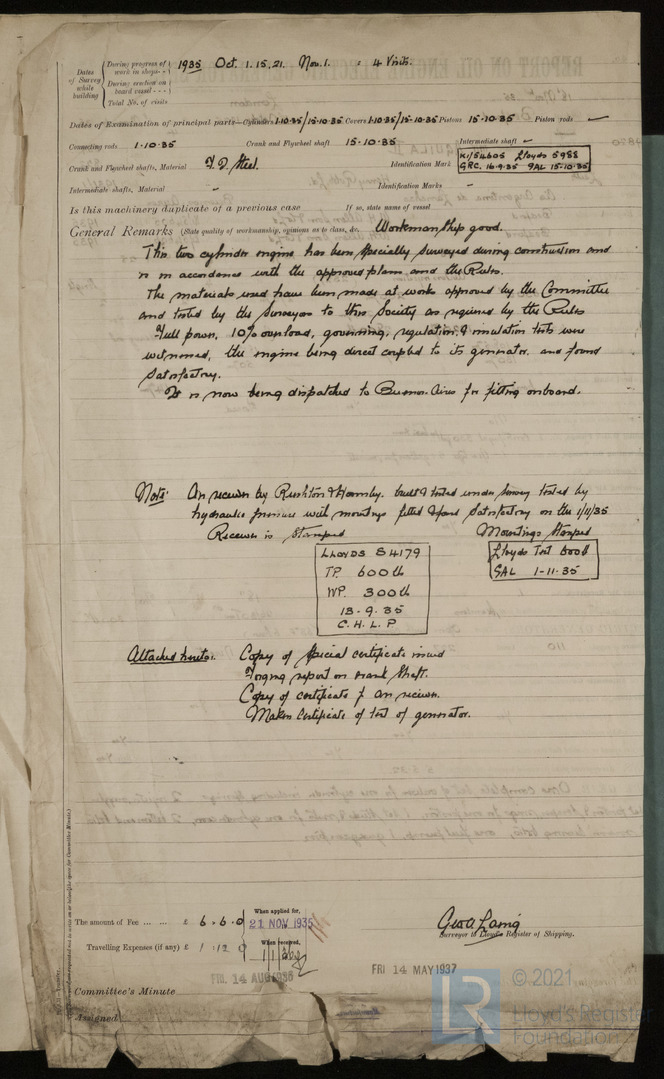 Dates of Survey while building
During progress of work in shops - - 1935 Oct. 1. 15, 21. Nov. 1. : 4 Visits.
During erection on board vessel - - -
Total No. of visits
Dates of Examination of principal parts—Cylinders 1-10-35/15-10-35 Covers 1-10-35/15-10-35 Pistons 15-10-35 Piston rods —
Connecting rods 1-10-35 Crank and Flywheel shaft 15-10-35 Intermediate shaft —
Crank and Flywheel shafts, Material F. I. Steel. Identification Mark K1/54605 Lloyds 5988
GRC. 16-9-35 GAL 15-10-35
Intermediate shafts, Material - Identification Marks -
Is this machinery duplicate of a previous case If so, state name of vessel
General Remarks (State quality of workmanship, opinions as to class, &c. Workmanship good.
This two cylinder engine has been specially surveyed during construction and
is in accordance with the approved plans and the Rules.
The materials used have been made at works approved by the Committee
and tested by the Surveyors to this Society as required by the Rules
Full power, 10% overload, governing, regulation, & insulation tests were
witnessed, the engine being direct coupled to its generator, and found
satisfactory.
It is now being dispatched to Buenos-Aires for fitting onboard.
Note: Air receiver by Ruston & Hornsby. built & tested under survey tested by
hydraulic pressure with mountings fitted & found satisfactory on the 1/11/35
Receiver is Stamped Mountings Stamped
LLOYDS S4179
TP. 600 lb
WP. 300 lb
13-9-35
C.H.L.P
Lloyds Test 600 lb
GAL 1-11-35
Attached hereto:. Copy of special certificate issued
Forging report on crank shaft.
Copy of certificate of air receiver.
Makers Certificate of test of generator.
The amount of Fee ... ... £ 6 : 6 : 0 When applied for, 21 NOV 1935
Travelling Expenses (if any) £ 1 : 12 : 0 When received, 1/1/36
Geo A. Laing
Surveyor to Lloyd's Register of Shipping.
FRI. 14 AUG 1936
FRI 14 MAY 1937
Committee's Minute
Assigned
© 2021
LR
Lloyd's Register
Foundation